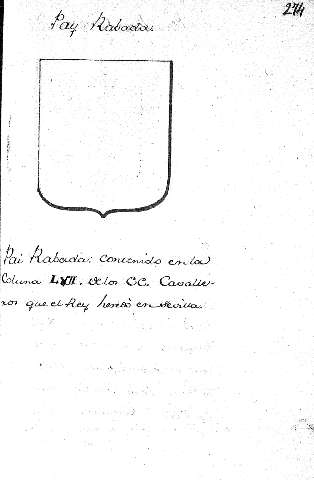 274
Pay Rabada.
Pai Rabada: Contenido en la
Coluna LVII. de los CC. Cavalle-
ros que el Rey heredó en Sevilla.